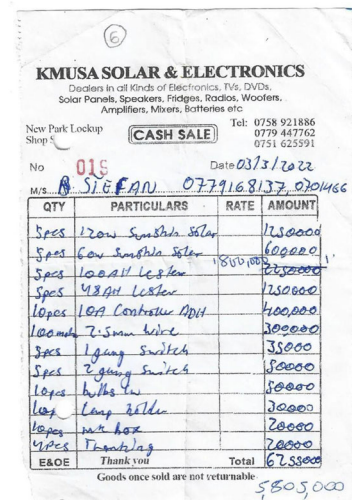 6
KMUSA SOLAR & ELECTRONICS
Dealers in all Kinds of Electronics, TVs, DVDs,
Solar Panels, Speakers, Fridges, Radios, Woofers,
Amplifiers, Mixers, Batteries etc
New Park Lockup
Shop
CASH SALE
Tel: 0758 921886
0779 447762
0751 625591
No 019 Date 03/3/2022
M/S STEFAN 0779168137, 0701466
QTY PARTICULARS RATE AMOUNT
5pcs 120w Sunshin Solar 1250000
5pcs 60w Sunshin Solar 600000
1800,000
5pcs 100AH Lester 2250000
5pcs 48AH Lester 1250000
10pcs 10A Controller ADH 400,000
100 2.5mm wire 300000
5pcs 1 gang Switch 35000
5pcs 2 gang Switch 50000
10pcs bulbs 50000
10p Lamp holder 30000
10pcs box 20000
4pcs 20000
E&OE Thank you Total 6255000
Goods once sold are not yeturnable
5805,000